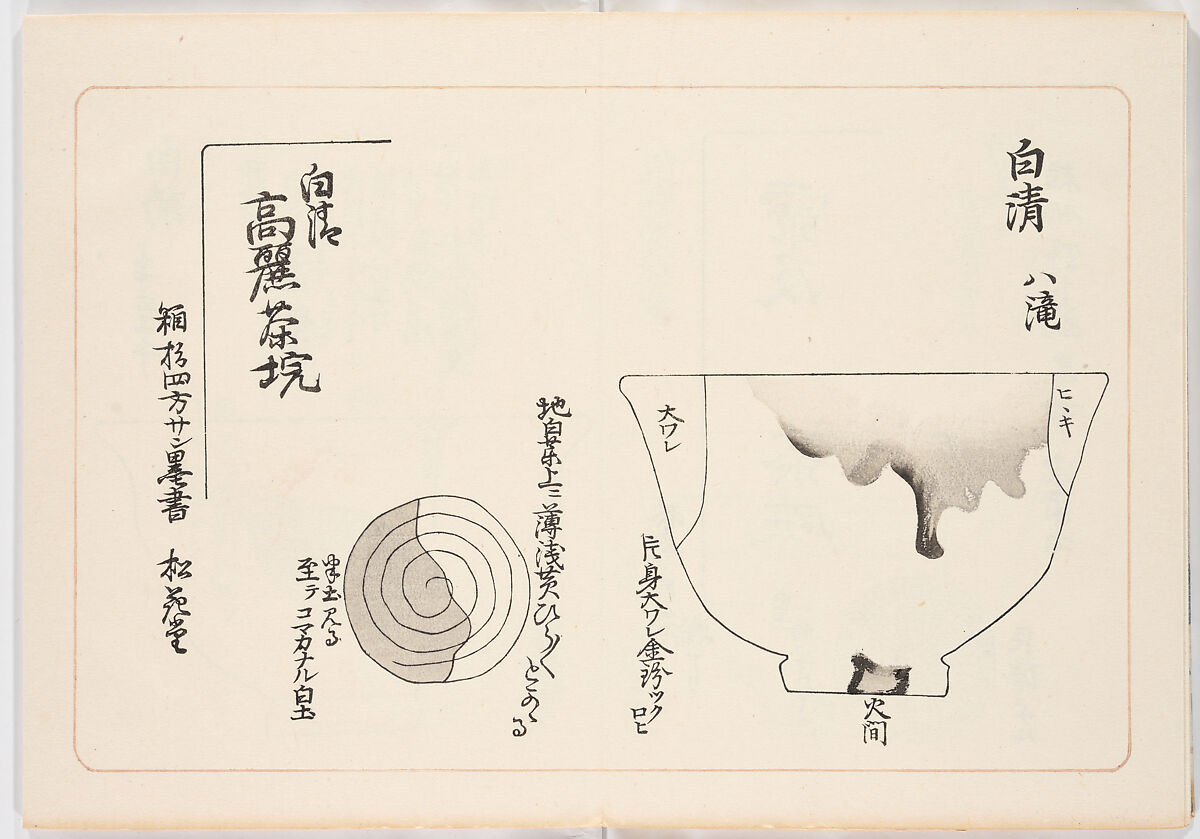 白清 八滝
ヒヽキ
大ワレ
火間
片身大ワレ金粉ツクロヒ
地白茶上ニ薄浅黄ひらく
白清
高麗茶垸
土見る
至テコマカナル白土
箱杉四方サン墨書 松花堂